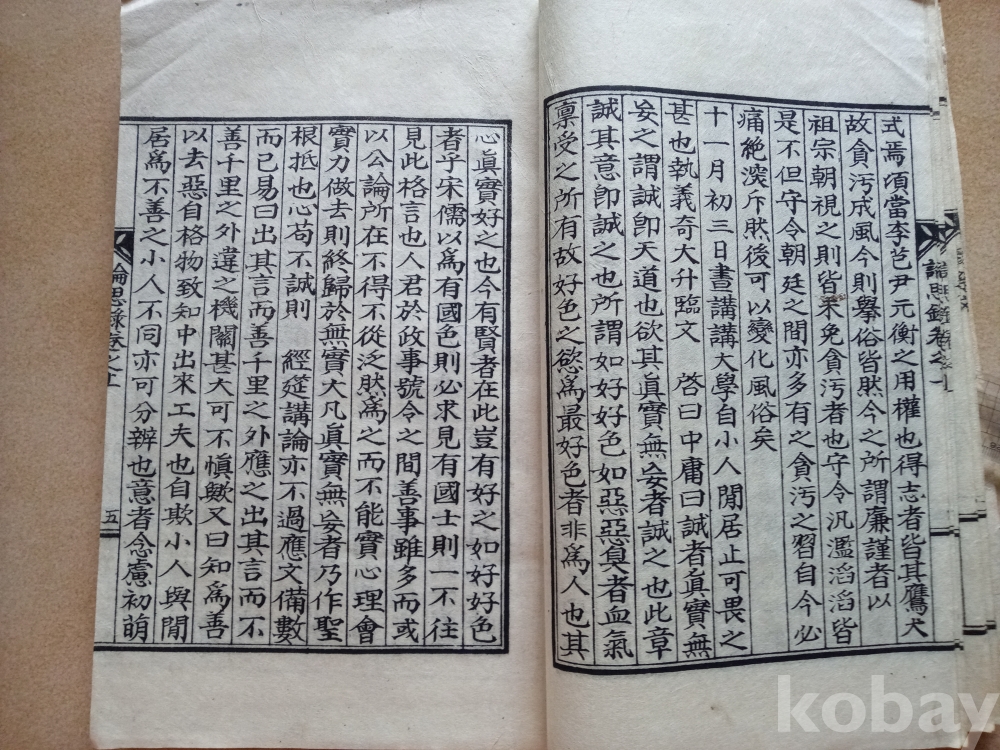 式焉頃當李芑尹元衡之用權也得志者皆其鷹犬
故貪汚成風今則擧俗皆然今之所謂廉謹者以
祖宗朝視之則皆未免貪汚者也守令汎濫滔滔皆
是不但守令朝廷之間亦多有之貪汚之習自今必
痛絶深斥然後可以變化風俗矣
十一月初三日書講講大學自小人閒居止可畏之
甚也執義奇大升臨文 啓曰中庸曰誠者眞實無
妄之謂誠卽天道也欲其眞實無妄者誠之也此章
誠其意卽誠之也所謂如好好色如惡惡臭者血氣
禀受之所有故好色之慾爲最好色者非爲人也其
心眞實好之也今有賢者在此豈有好之如好好色
者乎宋儒以爲有國色則必求見有國士則一不往
見此格言也人君於政事號令之間善事雖多而或
以公論所在不得不從泛然爲之而不能實心理會
實力做去則終歸於無實大凡眞實無妄者乃作聖
根抵也心苟不誠則 經筵講論亦不過應文備數
而已易曰出其言而善千里之外應之出其言而不
善千里之外違之機關甚大可不愼歟又曰知爲善
以去惡自格物致知中出來工夫也自欺小人與閒
居爲不善之小人不同亦可分辨也意者念慮初萌
論思錄卷之上
五
論思錄卷之上
kobay